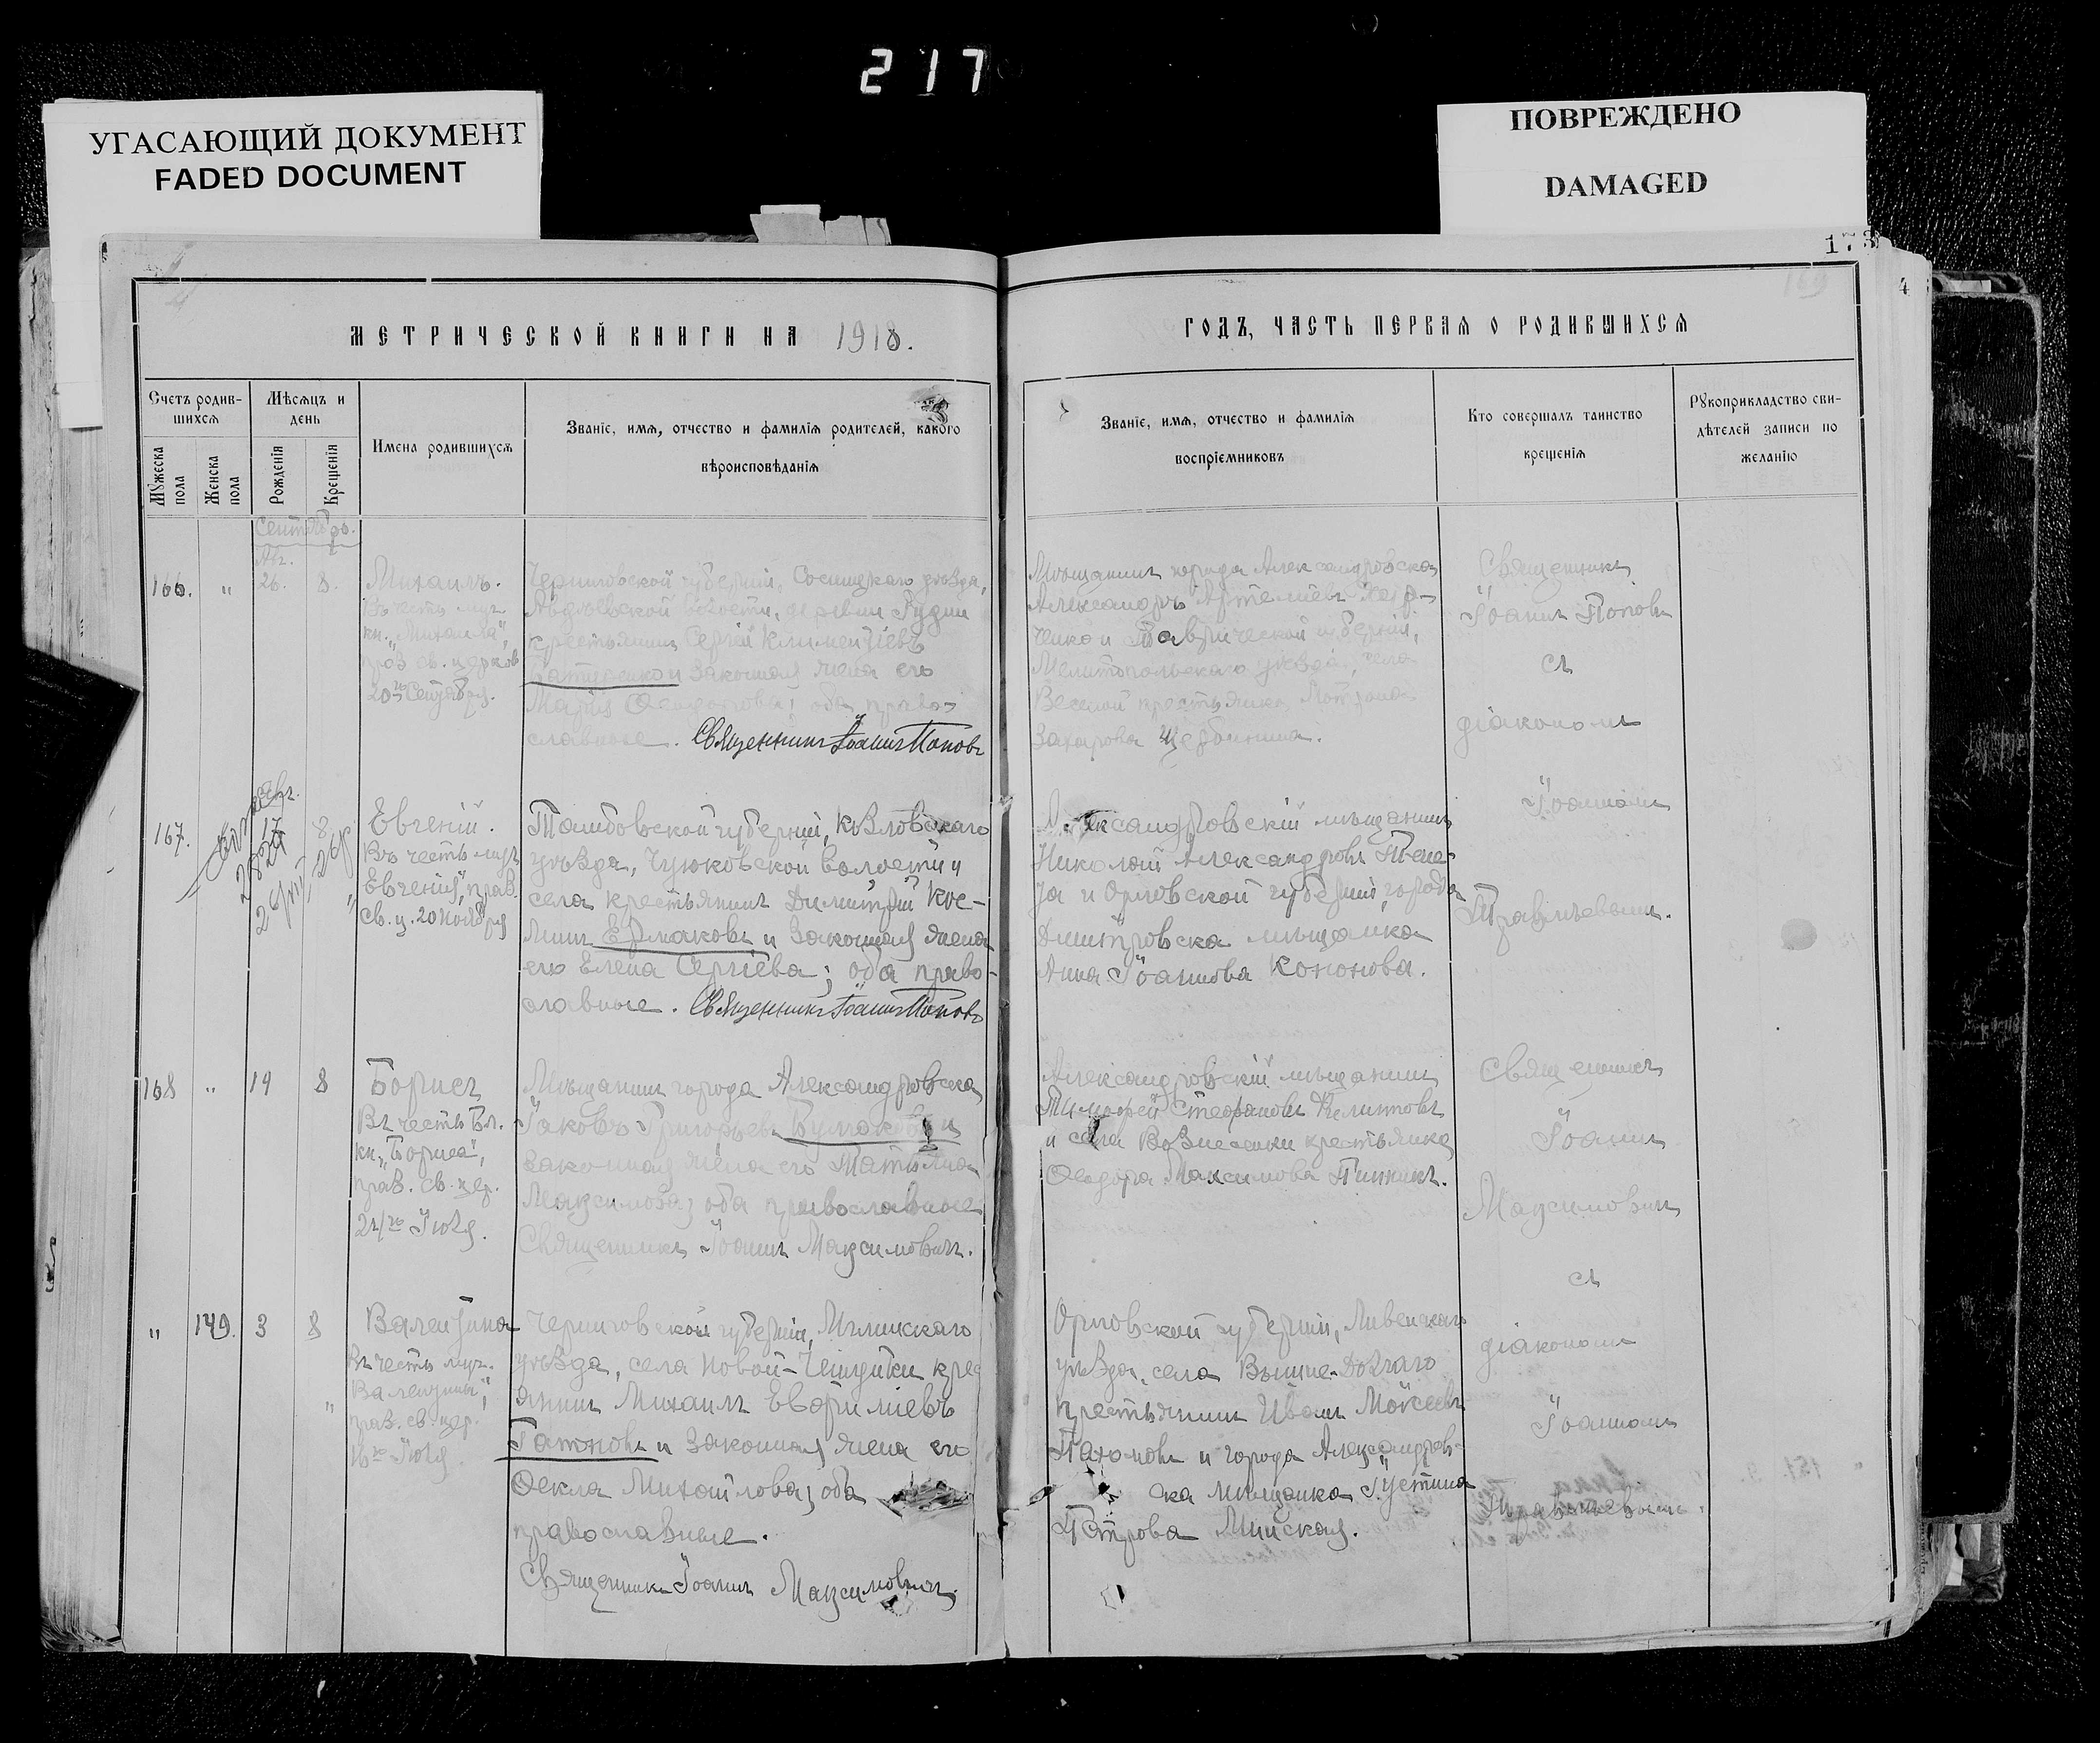 217
УГАСАЮЩИЙ ДОКУМЕНТ
FADED DOCUMENT
ПОВРЕЖДЕНО
DAMAGED
173
169
4
МЕТРИЧЕСКОЙ КНИГИ НА 1918.
ГОДЪ, ЧАСТЬ ПЕРВАЯ О РОДИВШИХСЯ
Счетъ родив-
шихся
Мѣсяцъ и
день
Мужеска
пола
Женска
пола
Рожденія
Крещенія
Имена родившихся
Званіе, имя, отчество и фамилія родителей, какого
вѣроисповѣданія
Званіе, имя, отчество и фамилія
воспріемниковъ
Кто совершалъ таинство
крещенія
Рукоприкладство сви-
дѣтелей записи по
желанію
Сентябрь.
Авг.
166. " 26. 8.
Михаилъ.
Въ честь муч.
кн. „Михаила",
праз. св. церков
20го Сентября.
Черниговской губерніи, Сосницкаго уѣзда,
Авдѣевской волости, деревни Рудни
крестьянинъ Сергій Климентіевъ
Батуренко и законная жена его
Марія Ѳеодотова; оба право-
славные. Священникъ Іоаннъ Поповъ
Мѣщанинъ города Александровска
Александръ Артеміевъ
и Таврической губерніи,
Мелитопольскаго уѣзда, села
Веселой крестьянка Мотрона
Захарова Щербинина.
Священникъ
Іоаннъ Поповъ
съ
діакономъ
Іоанномъ
Правлѣевымъ.
167.
Авг.
17 8
Евгеній.
Въ честь муч.
„Евгенія", праз.
св. ц. 20 ноября
Тамбовской губерніи, Козловскаго
уѣзда, Чуюковской волости и
села крестьянинъ Димитрій Кос-
минъ Ермаковъ и законная жена
его Елена Сергіева; оба право-
славные. Священникъ Іоаннъ Поповъ
Александровскій мѣщанинъ
Николай Александровъ Пене-
за и Орловской губерніи, города
Дмитровска мѣщанка
Анна Іоаннова Кононова.
168 " 14 8
Борисъ
Въ честь Бл.
кн. „Бориса",
праз. св. цер.
24го Іюля.
Мѣщанинъ города Александровска
Іаковъ Григорьевъ Бумаковъ и
законная жена его Татьяна
Максимова; оба православные
Священникъ Іоаннъ Максимовичъ.
Александровскій мѣщанинъ
Тимофей Стефановъ
и села Вознесенки крестьянка
Ѳеодора Максимова
Священникъ
Іоаннъ
Максимовичъ
съ
діакономъ
Іоанномъ
Правлѣевымъ.
" 149. 3 8
Валентина
Въ честь муч.
„Валентины",
праз. св. цер.
16го Іюля.
Черниговской губерніи, Мглинскаго
уѣзда, села Новой- крес
янинъ Михаилъ Евфиміевъ
Гатновъ и законная жена его
Ѳекла Михайлова; оба
православные.
Священникъ Іоаннъ Максимовичъ.
Орловской губерніи, Ливенскаго
уѣзда, села Вышне-Долгаго
крестьянинъ Иванъ Моѵсеевъ
Пахомовъ и города Александров-
ска мѣщанка Іустина
Петрова Минская.